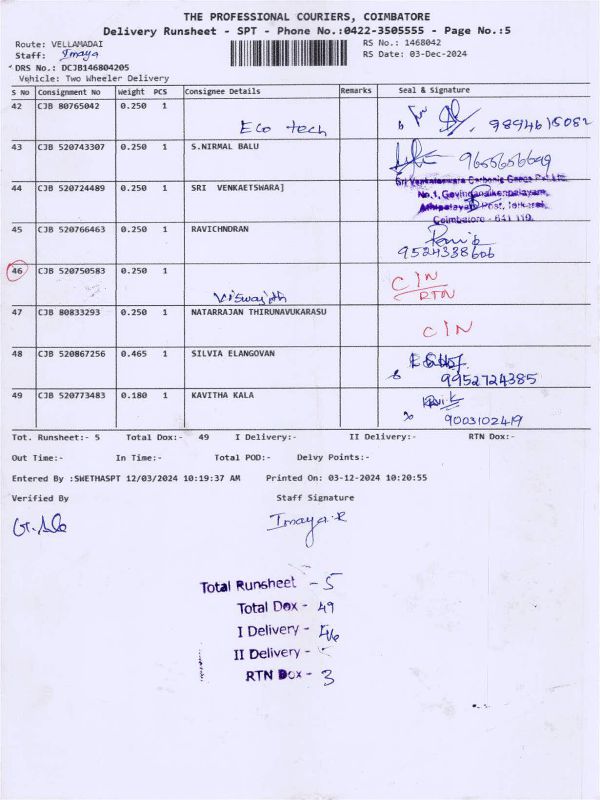 THE PROFESSIONAL COURIERS, COIMBATORE
Delivery Runsheet - SPT - Phone No.:0422-3505555 - Page No.:5
Route: VELLAMADAI RS No.: 1468042
Staff: Imaya RS Date: 03-Dec-2024
DRS No.: DCJB146804205
Vehicle: Two Wheeler Delivery
S No Consignment No Weight PCS Consignee Details Remarks Seal & Signature
42 CJB 80765042 0.250 1
Eco tech 9894615082
43 CJB 520743307 0.250 1 S.NIRMAL BALU
9655656649
44 CJB 520724489 0.250 1 SRI VENKAETSWARA]
Sri Venkateswara Carbonic Gases Pvt Ltd.
No.1, Govindanaickenpalayam,
Athipalayam Post,
Coimbatore - 641 110.
45 CJB 520766463 0.250 1 RAVICHNDRAN
9524338606
46 CJB 520750583 0.250 1
C/N
RTN
Viswajith
47 CJB 80833293 0.250 1 NATARRAJAN THIRUNAVUKARASU
C/N
48 CJB 520867256 0.465 1 SILVIA ELANGOVAN
9952724385
49 CJB 520773483 0.180 1 KAVITHA KALA
9003102419
Tot. Runsheet:- 5 Total Dox:- 49 I Delivery:- II Delivery:- RTN Dox:-
Out Time:- In Time:- Total POD:- Delvy Points:-
Entered By :SWETHASPT 12/03/2024 10:19:37 AM Printed On: 03-12-2024 10:20:55
Verified By Staff Signature
Imaya.R
Total Runsheet - 5
Total Dox - 49
I Delivery - 46
II Delivery -
RTN Dox - 3